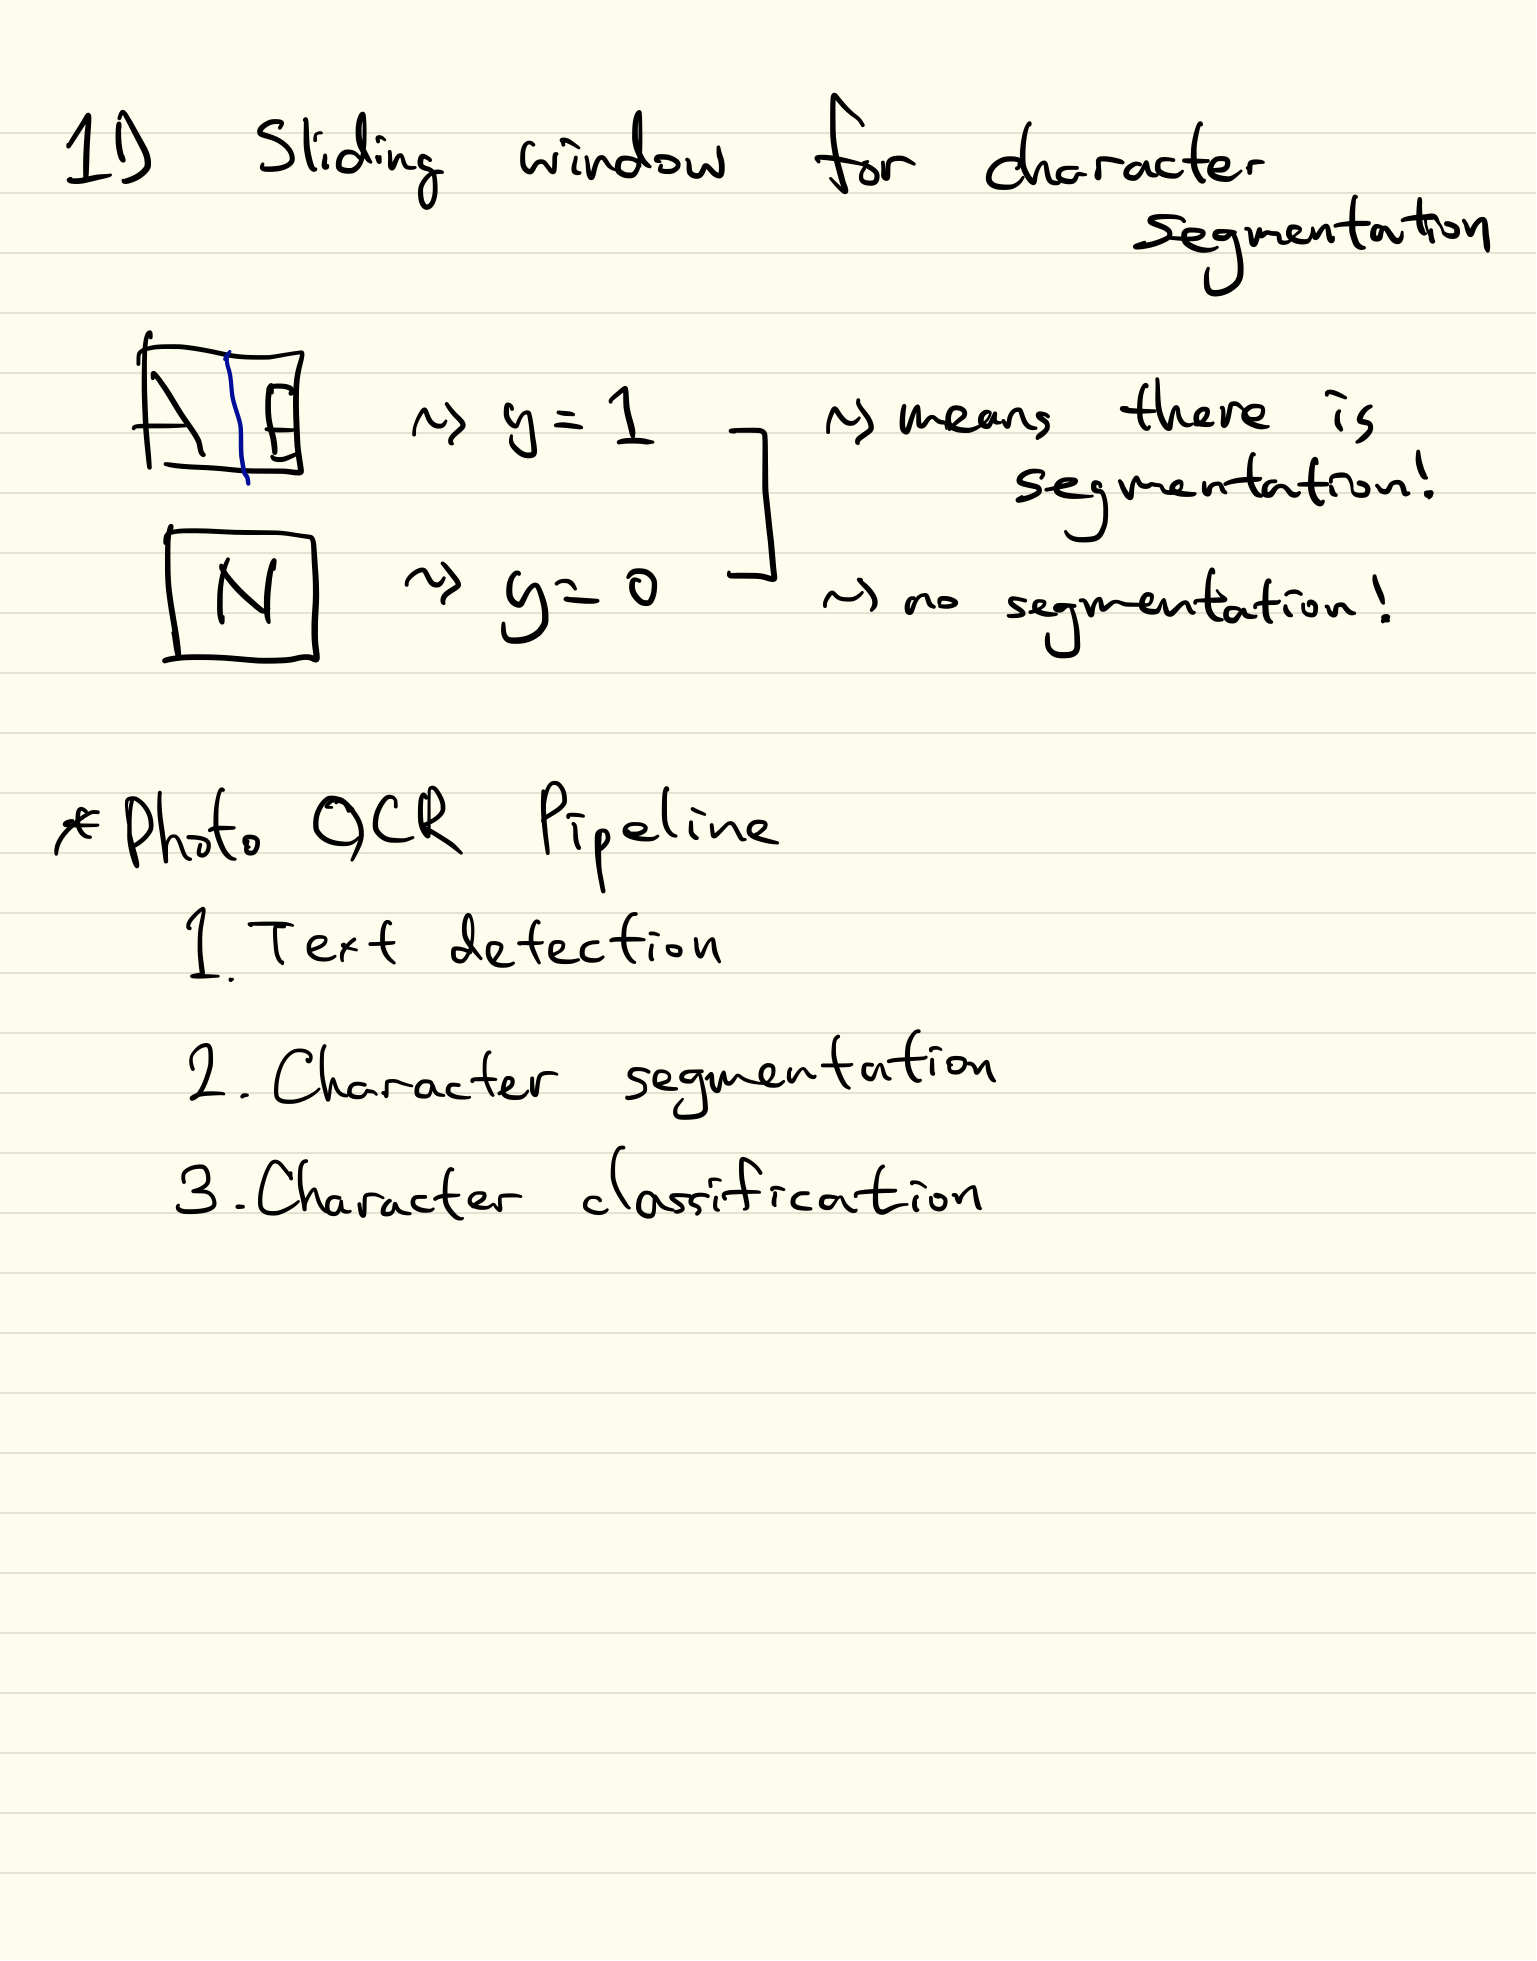 1D Sliding window for character
segmentation
A B ~> y = 1 ~> means there is
segmentation!
N ~> y = 0 ~> no segmentation!
* Photo OCR Pipeline
1. Text detection
2. Character segmentation
3. Character classification